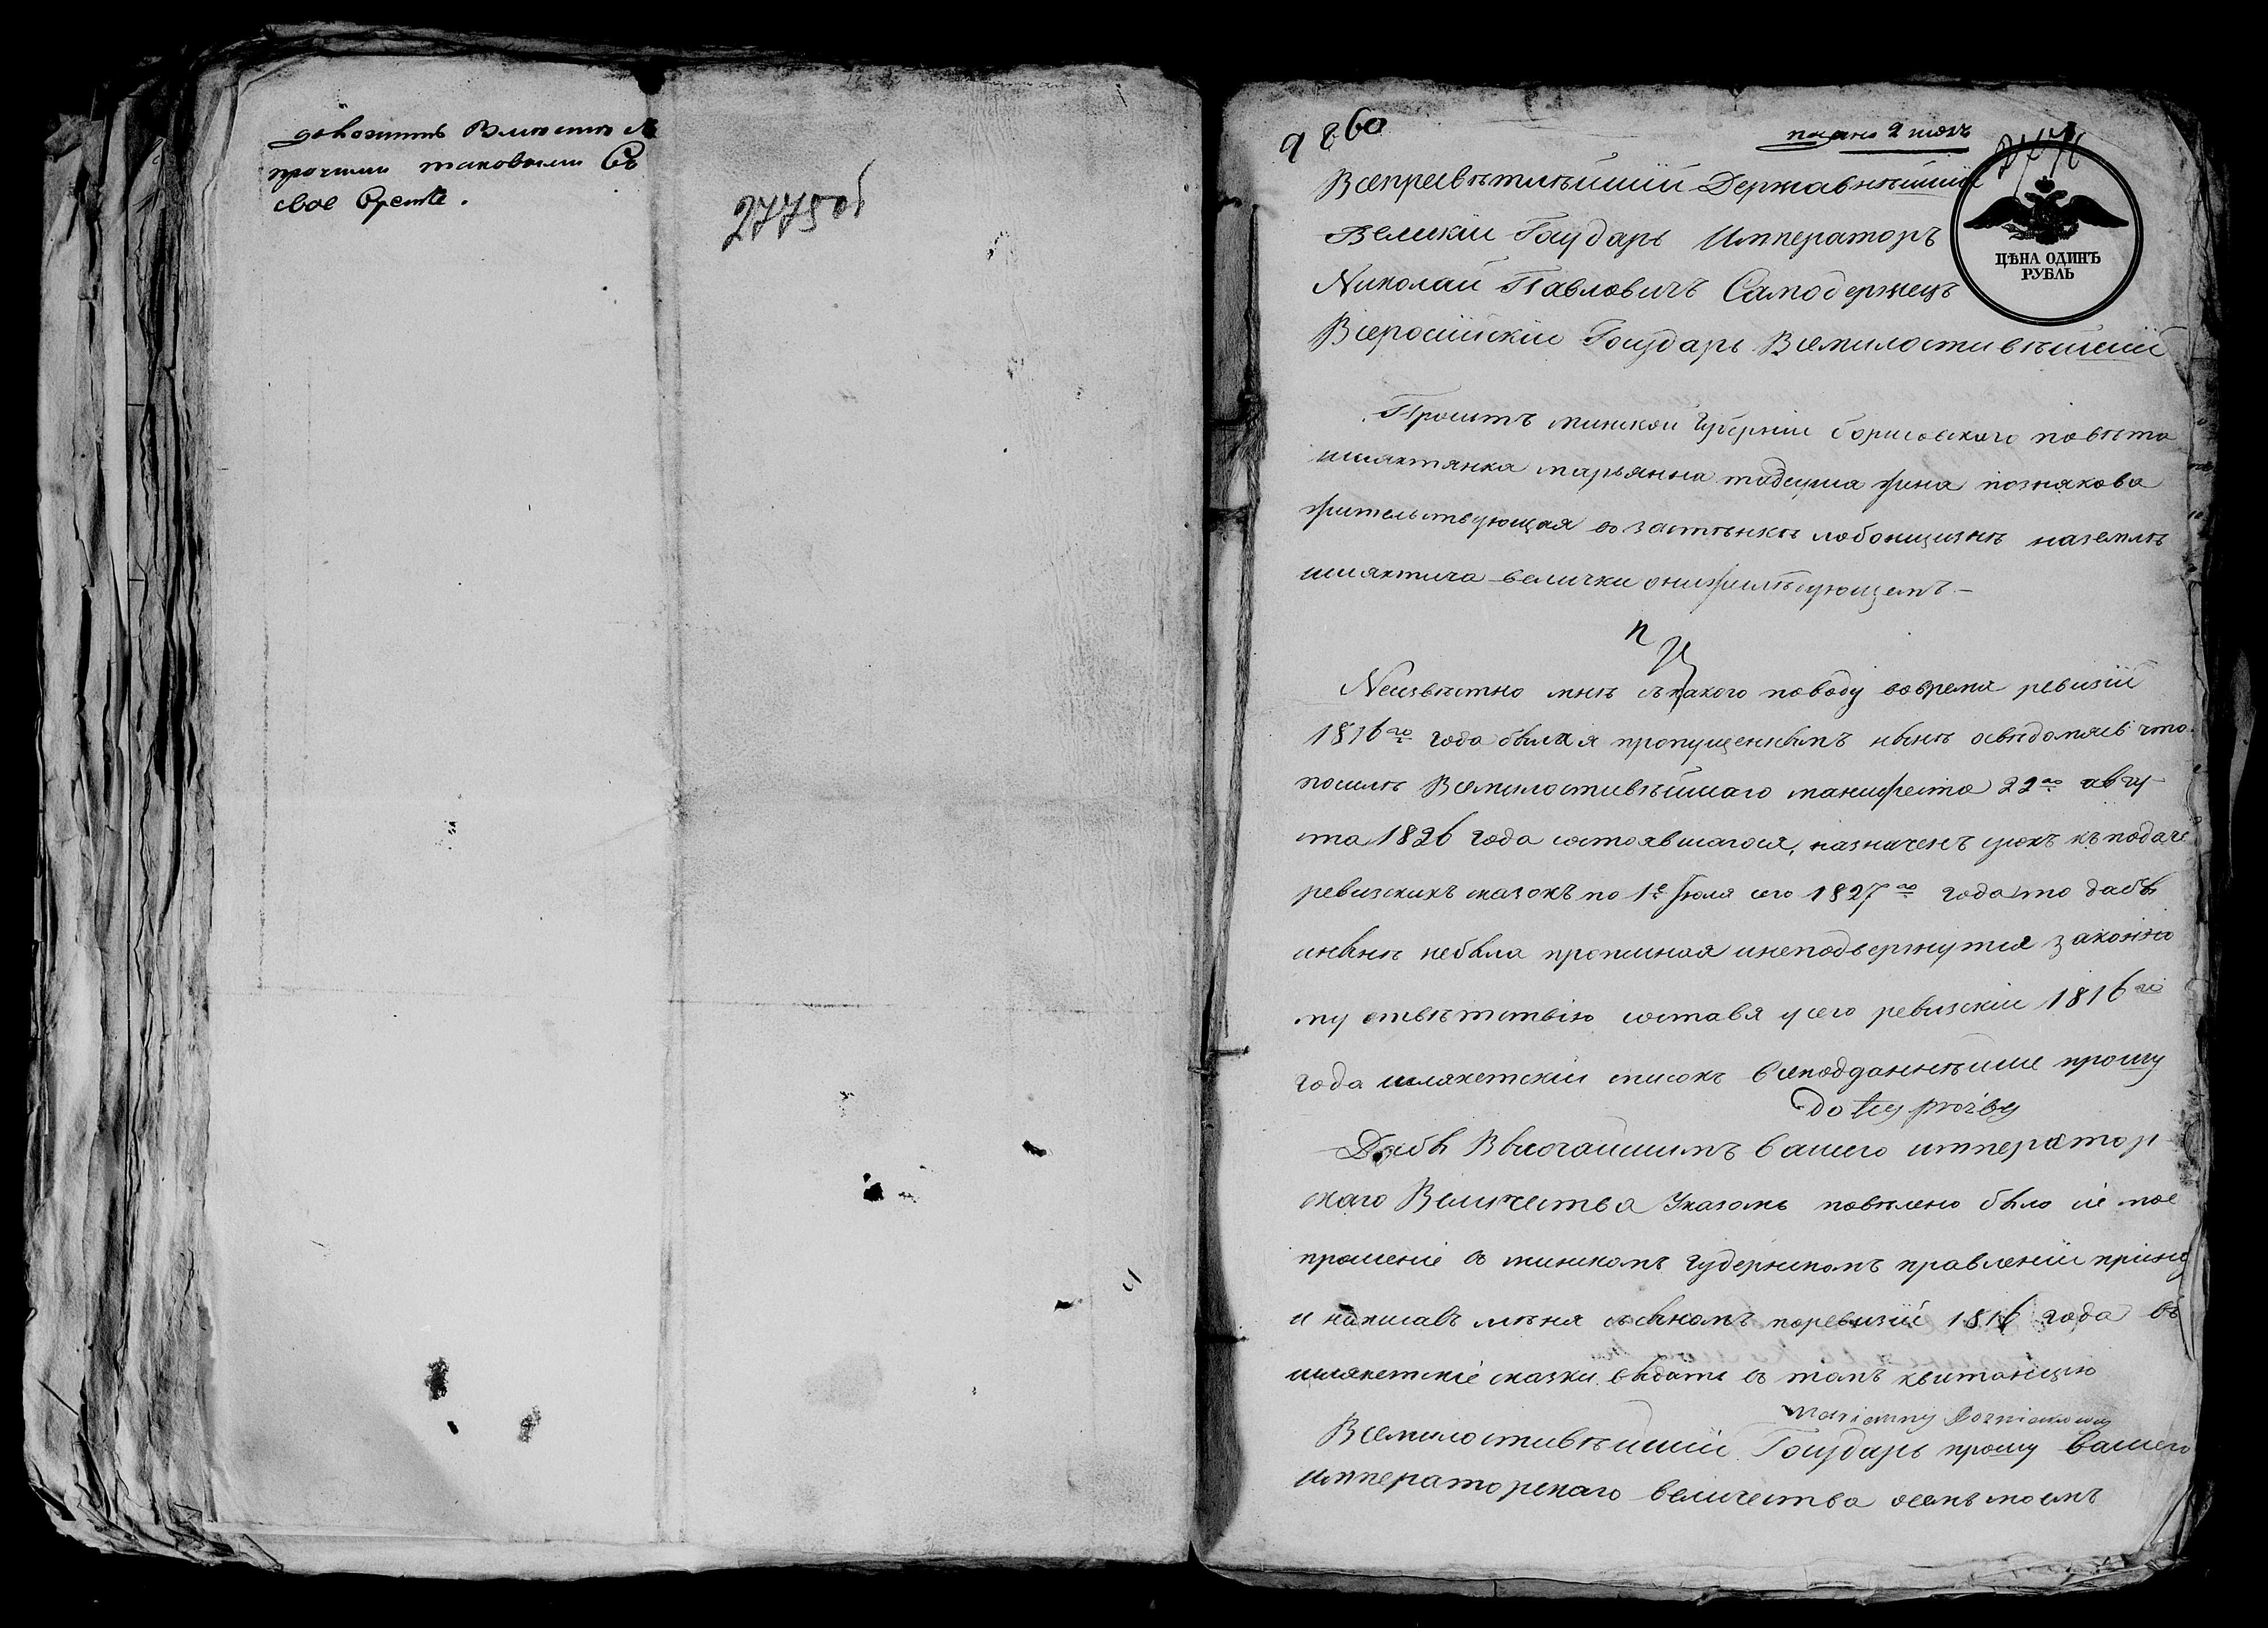 доложить Вместе съ
прочими таковыми Въ
свое Время.
2775 об
2860
подано 2 июля
2776
Всепресветлѣйшій Державнѣйшій
Великій Государь Императоръ
Николай Павловичъ Самодержецъ
Всеросійскій Государь Всемилостивѣйшій
ЦѢНА ОДИНЪ
РУБЛЬ
Проситъ минской Губерніи борисовского повѣта
шляхтянка марьянна тадеуша жена познякова
жительствующая въ застѣнкѣ лобонщизнѣ наземлѣ
шляхтича велички онижеслѣдующемъ –
Неизвѣстно мнѣ съ какого поводу вовремя ревизіи
1816го года была я пропущеннымъ нынѣ освѣдомясь что
посилѣ Всемилостивѣйшаго манифеста 22го авгу
ста 1826 года состоявшагося, назначенъ срокъ къ подаче
ревизскихъ сказокъ по 1е Июля сего 1827го года то дабы
инынѣ небыла прописная инеподвергнутся законно
му отвѣтствію составя усего ревизскій 1816го
года шляхетскій списокъ Всеподданнѣйше прошу
Do tey proźby
Дабы Высочайшимъ вашего император
скаго Величества Указомъ повелено было сіе мое
прошеніе въ минскомъ губернскомъ правленіи принят
и написавъ меня съ сыномъ поревизіи 1816 года въ
шляхетскіе сказки выдать въ томъ квитанцію
Marianny Pozniakowey
Всемилостивѣйшій Государь прошу вашего
императорскаго величества осемъ моемъ